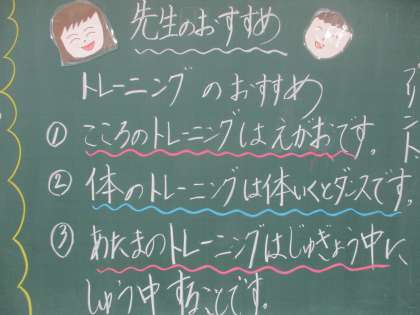 先生のおすすめ
トレーニングのおすすめ
① こころのトレーニングはえがおです。
② 体のトレーニングは体いくとダンスです。
③ あたまのトレーニングはじゅぎょう中に、
しゅう中することです。
リント